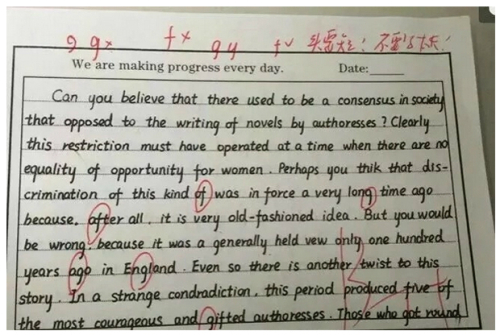 g gx fx gy fv 头需短! 不要
We are making progress every day. Date:
Can you believe that there used to be a consensus in society
that opposed to the writing of novels by authoresses? Clearly
this restriction must have operated at a time when there are no
equality of opportunity for women. Perhaps you thik that dis-
crimination of this kind of was in force a very long time ago
because, after all, it is very old-fashioned idea. But you would
be wrong, because it was a generally held vew only one hundred
years ago in England. Even so there is another twist to this
story. In a strange condradiction, this period produced five of
the most courageous and gifted authoresses. Those who got round